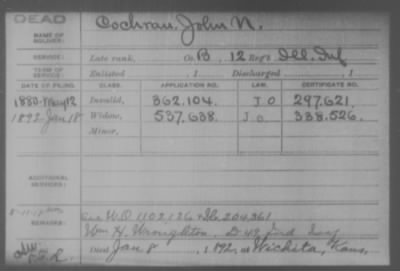 DEAD
NAME OF SOLDIER: Cochran, John N.
SERVICE: Late rank, Co. B, 12 Reg't Ill. Inf
TERM OF SERVICE: Enlisted , 1 Discharged , 1
DATE OF FILING. CLASS. APPLICATION NO. LAW. CERTIFICATE NO.
1880-May 12 Invalid, 362,104. J O 297.621.
1892-Jan 18 Widow, 537,638. J.O. 338.526.
Minor,
ADDITIONAL SERVICES:
REMARKS: W.O 1102,126 204,361
Wm H. Wroughton. D 49 Ind Inf
Died Jan 8 , 192, at Wichita, Kans,